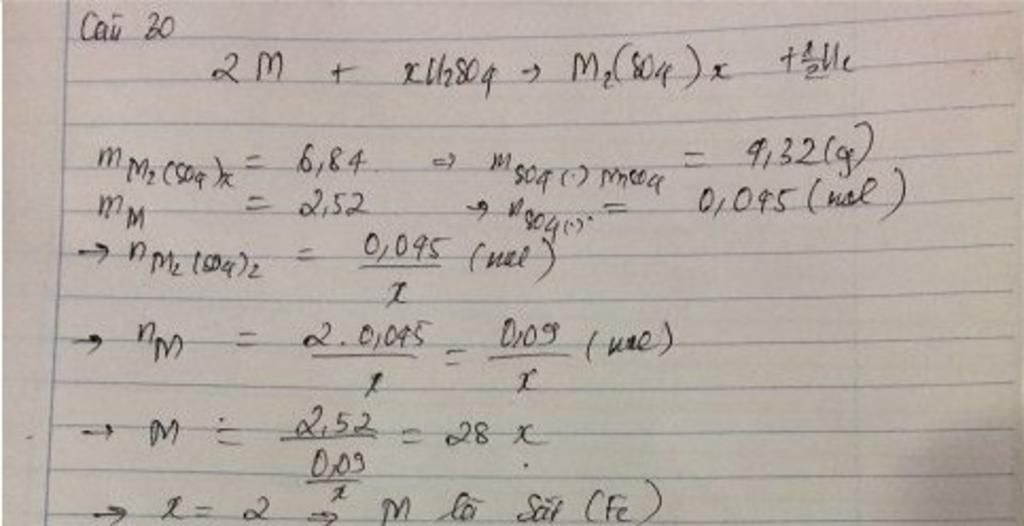 Câu 30
2M + xH₂SO₄ → M₂(SO₄)x + x/2 H₂
m M₂(SO₄)x = 6,84 ⇒ m SO₄(-) = 4,32(g)
m M = 2,52 → n SO₄(-) = 0,045 (mol)
→ n M₂(SO₄)₂ = 0,045/x (mol)
→ n M = 2.0,045/x = 0,09/x (mol)
→ M = 2,52/(0,09/x) = 28 x
→ x = 2 → M là Sắt (Fe)